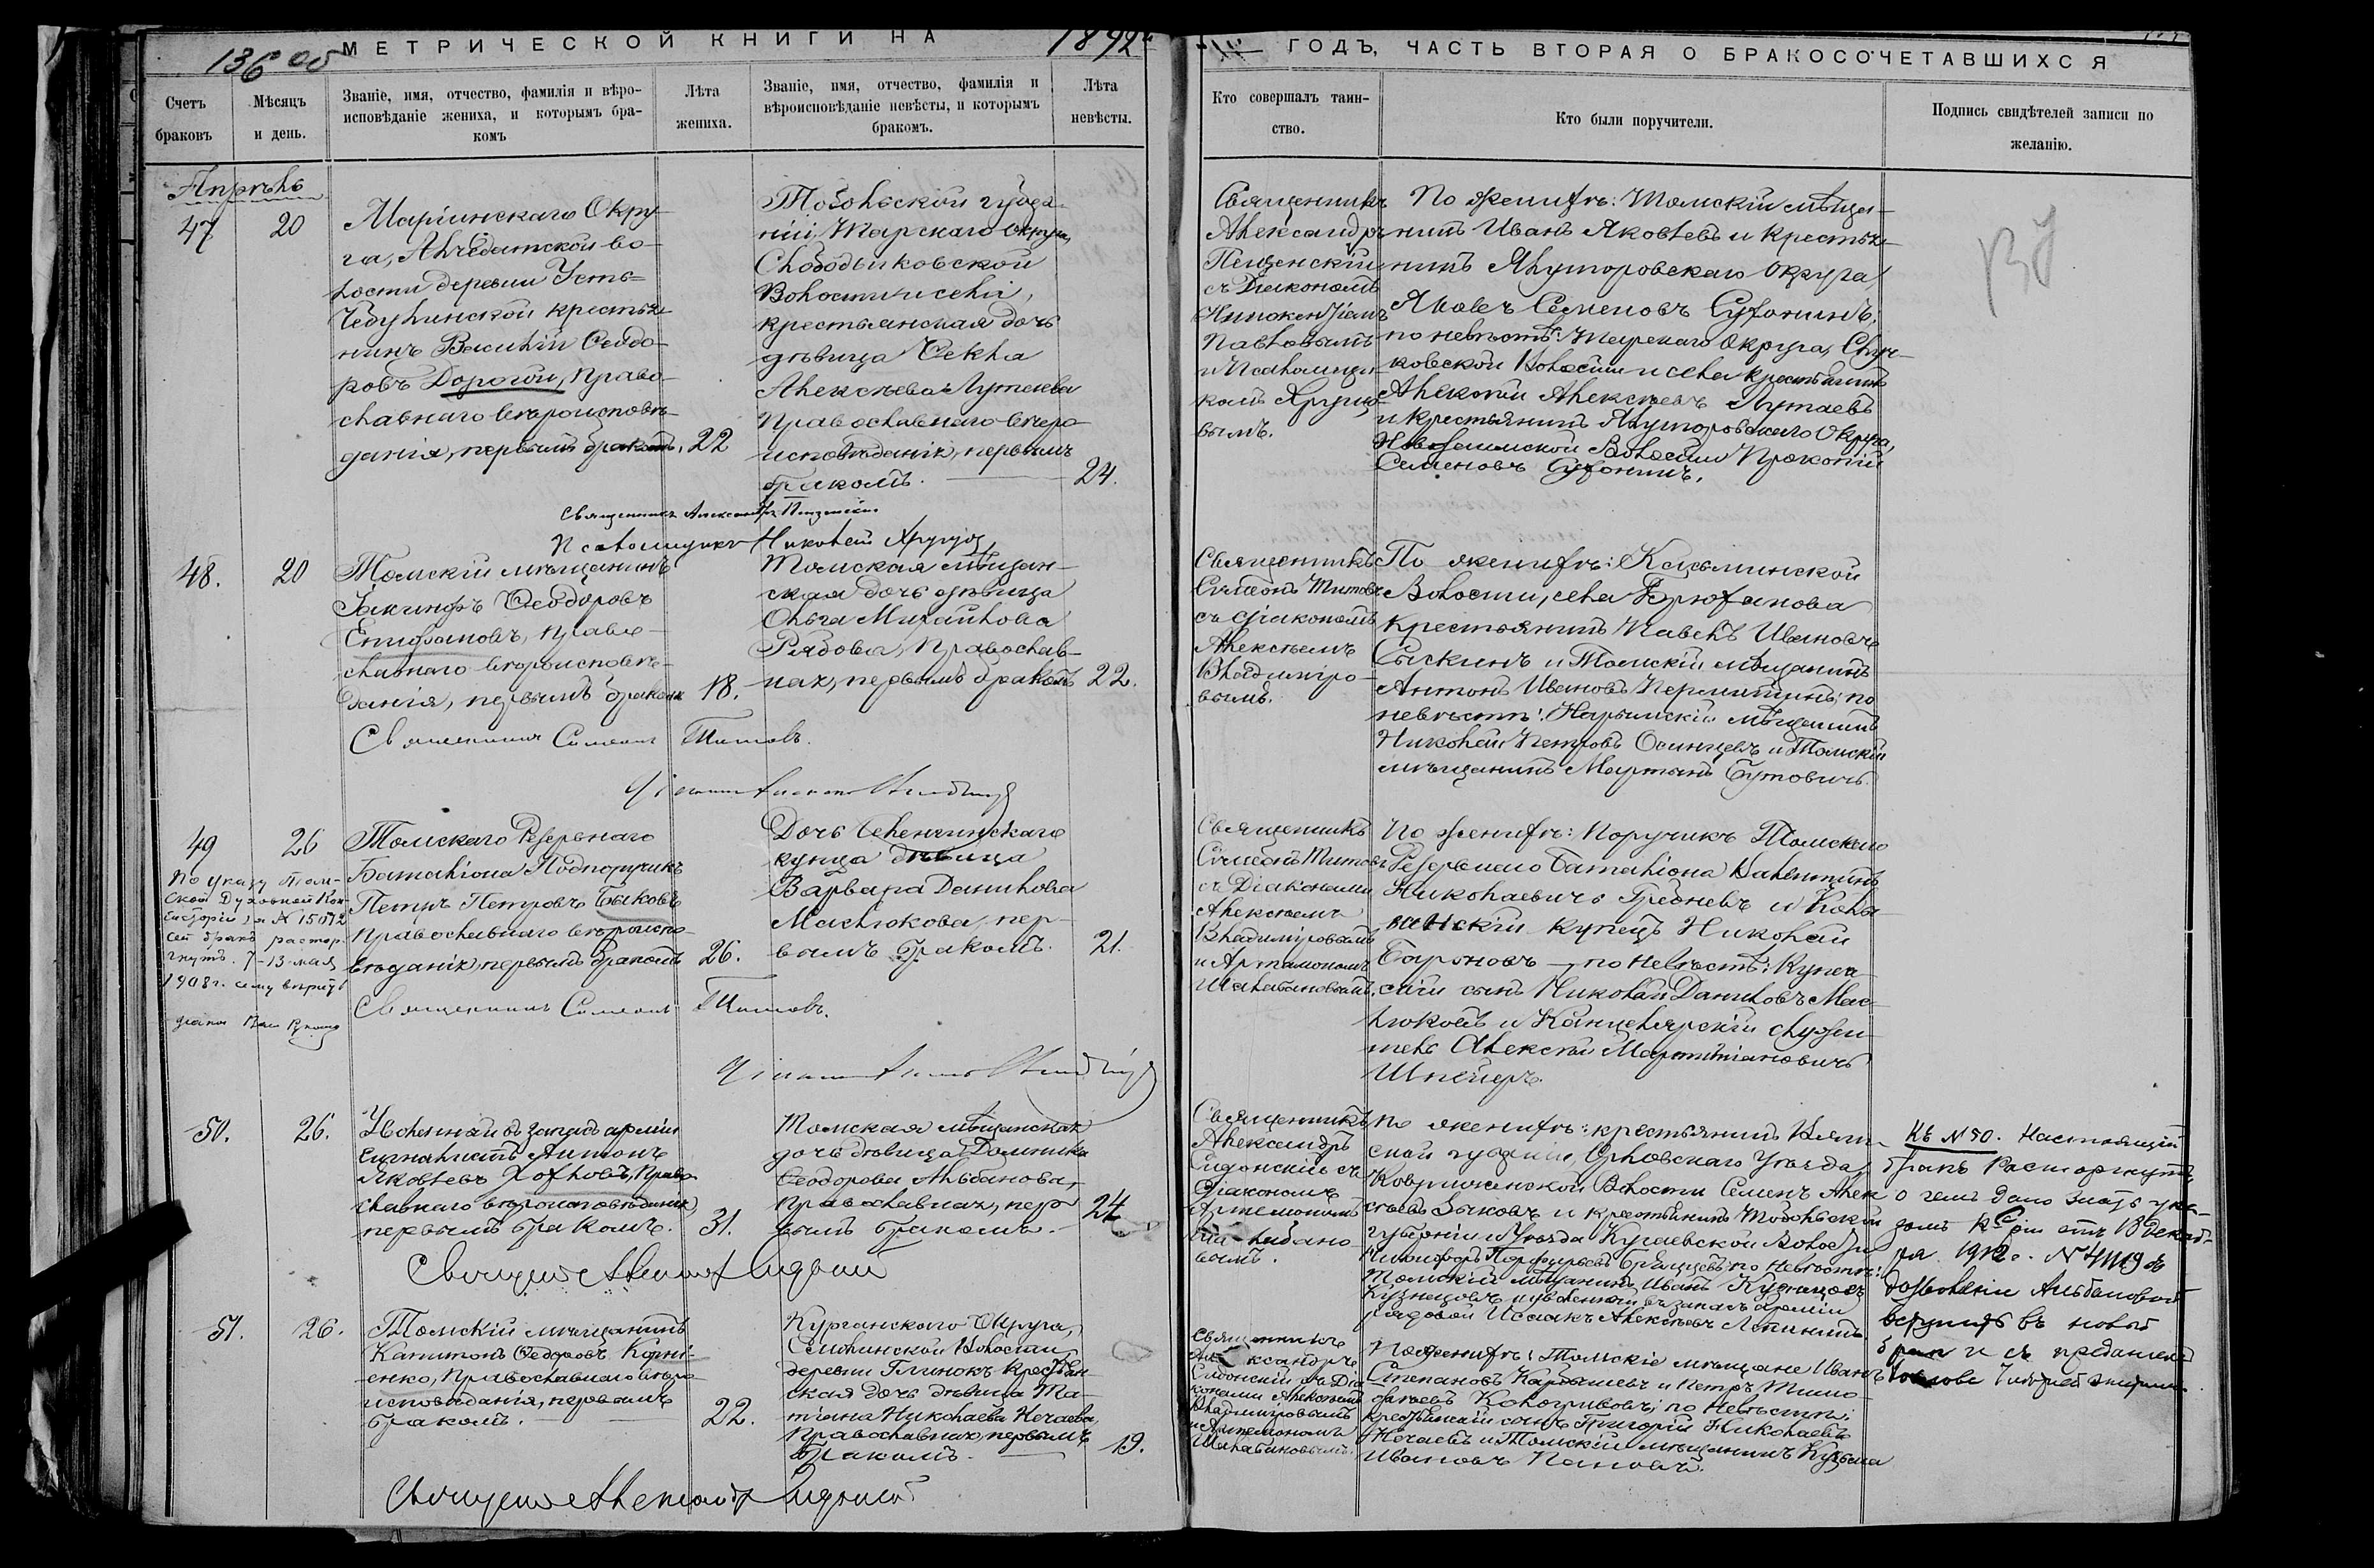 МЕТРИЧЕСКОЙ КНИГИ НА 1892
ГОДЪ, ЧАСТЬ ВТОРАЯ О БРАКОСОЧЕТАВШИХСЯ
136 об
Счетъ браковъ
Мѣсяцъ и день.
Званіе, имя, отчество, фамилія и вѣро-
исповѣданіе жениха, и которымъ бра-
комъ
Лѣта
жениха.
Званіе, имя, отчество, фамилія и
вѣроисповѣданіе невѣсты, и которымъ
бракомъ.
Лѣта
невѣсты.
Кто совершалъ таин-
ство.
Кто были поручители.
Подпись свидѣтелей записи по
желанію.
Апрѣль
47
20
Маріинскаго Окру-
га, Алчедатской во-
лости деревни Усть-
Чебулинской крестья-
нинъ Василій Ѳеодо-
ровъ Дорогой, право-
славнаго вѣроисповѣ-
данія, первымъ бракомъ.
22
Тобольской губер-
ніи, Тарскаго округа,
Волости и села,
крестьянская дочь
дѣвица Ѳекла
Алексѣева Лутаева
православнаго вѣро-
исповѣданія, первымъ
бракомъ.
24.
Священникъ
Александръ
съ Діакономъ
Иннокентіемъ
Павловымъ
и Псаломщи-
комъ Хруцко-
вымъ.
По женихѣ: Томскій мѣща-
нинъ Иванъ Яковлевъ и крестья-
нинъ Ялуторовскаго Округа
Яковъ Семеновъ Сухонинъ;
по невѣстѣ: Тарскаго Округа,
ковской Волости и села крестьянинъ
Алексѣй Алексѣевъ Лутаевъ
и крестьянинъ Ялуторовскаго Округа,
Волости Прокопій
Семеновъ Сухонинъ.
Священникъ Александръ
Псаломщикъ Николай
48.
20
Томскій мѣщанинъ
Іакинфъ Ѳеодоровъ
Епифановъ, право-
славнаго вѣроисповѣ-
данія, первымъ бракомъ
18.
Томская мѣщан-
ская дочь дѣвица
Ольга Михайлова
Рядова, православ-
ная, первымъ бракомъ
22.
Священникъ
Симеонъ Титовъ
съ діакономъ
Алексѣемъ
Владиміро-
вымъ.
По женихѣ: Касьминской
Волости, села Брюханова
крестьянинъ Павелъ Ивановъ
Сыскинъ и Томскій мѣщанинъ
Антонъ Ивановъ Пермитинъ; по
невѣстѣ: Нарымскій мѣщанинъ
Николай Петровъ Осинцевъ и Томскій
мѣщанинъ Мартынъ Бутовичъ.
Священникъ Симеонъ Титовъ.
49
26
По указу Том-
ской Духовной Кон-
систоріи за № 15072
сей бракъ растор-
гнутъ. 7-13 мая
1908 г.
Томскаго Резервнаго
Баталіона Подпоручикъ
Петръ Петровъ Быковъ
православнаго вѣроиспо-
вѣданія, первымъ бракомъ
26.
Дочь Селенгинскаго
купца дѣвица
Варвара Данилова
Маслюкова, пер-
вымъ бракомъ.
21.
Священникъ
Симеонъ Титовъ
съ Діаконами
Алексѣемъ
Владиміровымъ
и Артамономъ
Шалабановымъ.
По женихѣ: Поручикъ Томскаго
Резервнаго Баталіона Валентинъ
Николаевичъ Гребневъ и Колы-
ванскій купецъ Николай
по невѣстѣ: Купе-
скій сынъ Николай Даниловъ Мас-
люковъ и Канцелярскій служи-
тель Алексѣй Мартиніановичъ
Шпейеръ.
Священникъ Симеонъ Титовъ.
50.
26.
Уволенный въ запасъ арміи
сигналистъ Антонъ
Яковлевъ Хохловъ, право-
славнаго вѣроисповѣданія,
первымъ бракомъ.
31.
Томская мѣщанская
дочь дѣвица Домника
Ѳеодорова Альбанова,
православная, пер-
вымъ бракомъ.
24
Священникъ
Александръ
Сидонскій съ
Діакономъ
Артемономъ
Шалабано-
вымъ.
По женихѣ: крестьянинъ Вят-
ской губерніи, Орловскаго Уѣзда,
Волости Семенъ Алек-
сѣевъ Зыковъ и крестьянинъ Тобольской
губерніи и Уѣзда Кугаевской Волости
Никифоръ Порфирьевъ по невѣстѣ:
Томскій мѣщанинъ Иванъ Кузнецовъ
и уволенный въ запасъ арміи
рядовой Исаакъ Алексѣевъ
Къ № 50. Настоящій
бракъ расторгнутъ,
о чемъ дано знать ука-
зомъ К-ріи отъ 13 декаб-
ря 1912 г. № 41119 съ
дозволеніемъ Альбановой
вступить въ новый
бракъ и съ преданіемъ
Священникъ Александръ Сидонскій
51.
26.
Томскій мѣщанинъ
Капитонъ Ѳедоровъ Корні-
енко, православнаго вѣро-
исповѣданія, первымъ
бракомъ.
22.
Курганскаго Округа,
Смолинской Волости
деревни Глинокъ крестьян-
ская дочь дѣвица Та-
тіана Николаева Нечаева,
православная, первымъ
бракомъ.
19.
Священникъ
Александръ
Сидонскій съ Діа-
конами Алексѣемъ
Владиміровымъ
и Артемономъ
Шалабановымъ.
По женихѣ: Томскіе мѣщане Иванъ
Степановъ Карбышевъ и Петръ Тимо-
фѣевъ Кологривовъ; по невѣстѣ:
крестьянскій сынъ Григорій Николаевъ
Нечаевъ и Томскій мѣщанинъ Кузьма
Ивановъ Пановъ.
Священникъ Александръ Сидонскій